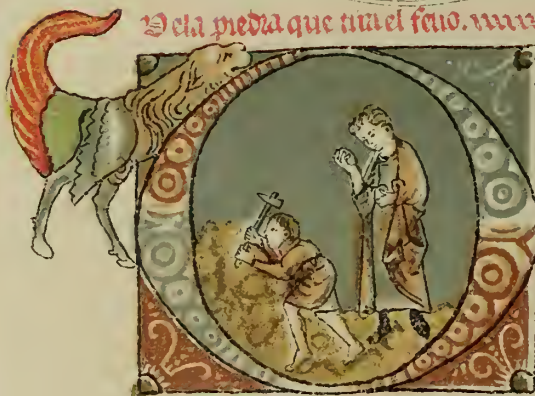 De la piedra que tira el feuo.